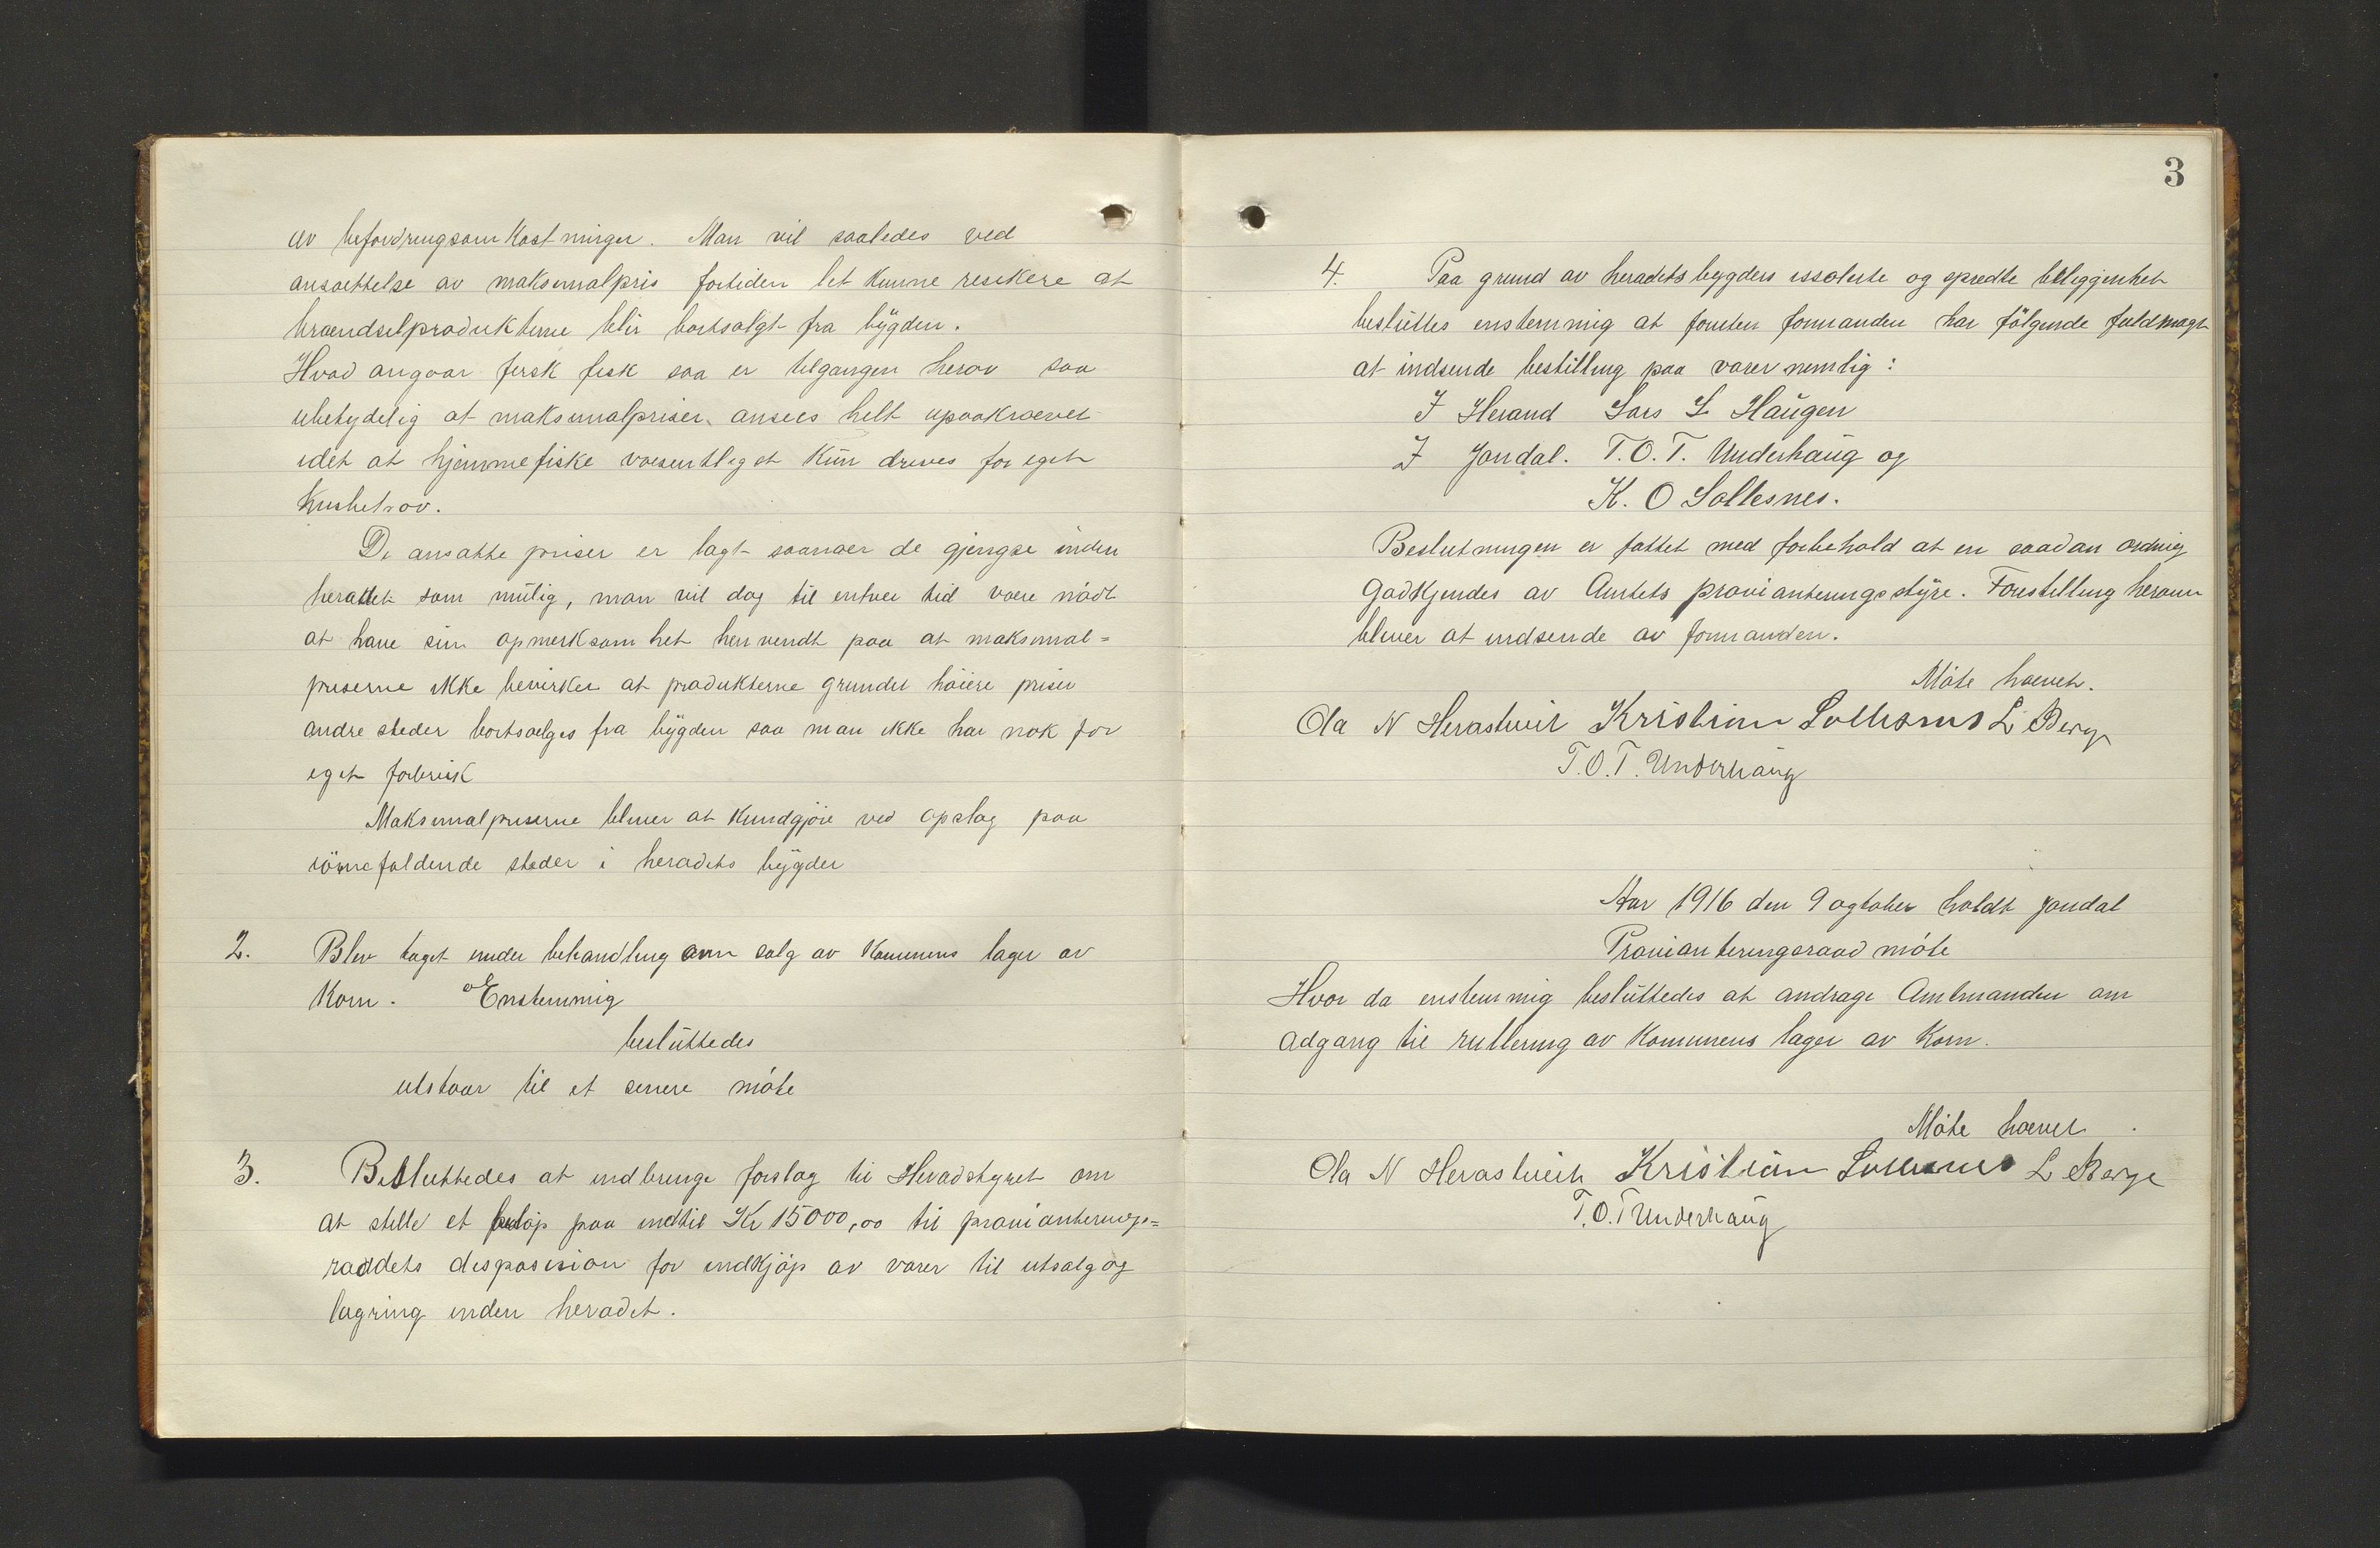 av befordringsomkostninger. Man vil saaledes ved
ansættelse av maksimalpris fortiden let kunne resikere at
brændselprodukterne blir bortsolgt fra bygden.
Hvad angaar fersk fisk saa er tilgangen herav saa
ubetydelig at maksimalpriser ansees helt upaakrævet
idet at hjemmefiske væsentligst kun drives for eget
husbehov.
De ansatte priser er lagt saanær de gjengse inden
heradet som mulig, man vil dog til enhver tid være nødt
at have sin opmerksomhet henvendt paa at maksimal=
priserne ikke bevirker at produkterne grundet høiere priser
andre steder bortsælges fra bygden saa man ikke har nok for
eget forbruk
Maksimalpriserne bliver at kundgjøre ved opslag paa
iøinefaldende steder i heradets bygder
2. Blev taget under behandling om salg av Komunens lager av
Korn. Enstemmig
besluttedes
utstaar til et senere møte
3. Besluttedes at indbringe forslag til Heradstyret om
at stille et beløp paa indtil Kr 15000,00 til provianterings=
raadets disposision for indkjøp av varer til utsalg og
lagring inden heradet.
3
4. Paa grund av heradets bygders issolerte og spredte beliggenhet
besluttes enstemmig at foruten formanden har følgende fuldmagt
at indsende bestilling paa varer nemlig:
I Herand Lars L Haugen
I Jondal. T.O.T. Underhaug og
K. O Sollesnes.
Beslutningen er fattet med forbehold at en saadan ordning
godkjendes av Amtets provianteringsstyre. Forestilling herom
bliver at indsende av formanden.
Møte hævet.
Ola N Herastveit Kristian Sollesnes L Berge
T.O.T. Underhaug
Aar 1916 den 9 ogtober holdt Jondal
Provianteringsraad møte
Hvor da enstemmig besluttedes at andrage Amtmanden om
adgang til rullering av Komunens lager av Korn.
Møte hævet.
Ola N Herastveit Kristian Sollesnes L Berge
T.O.T Underhaug